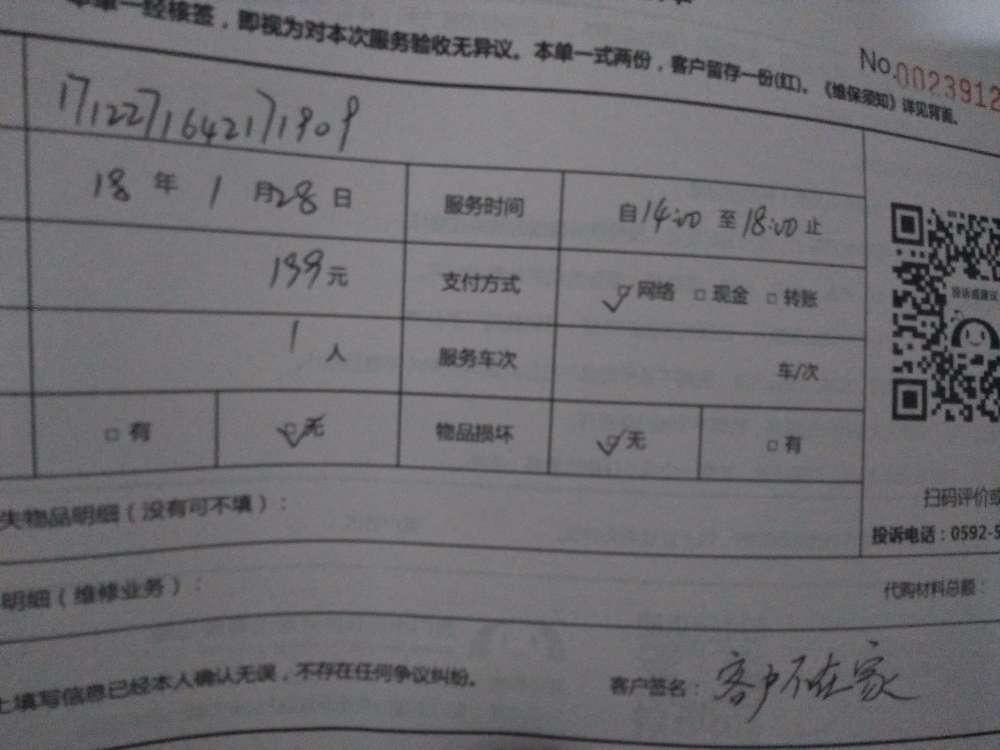 本单一经核签，即视为对本次服务验收无异议。本单一式两份，客户留存一份(红)。《维保须知》详见背面。
No.0023912
1712271642171909
18 年 1 月 28 日 服务时间 自 14:00 至 18:00 止
199 元 支付方式 ☑ 网络 □ 现金 □ 转账
1 人 服务车次 车/次
□ 有 ☑ 无 物品损坏 ☑ 无 □ 有
投诉或建议
扫码评价或
失物品明细（没有可不填）：
投诉电话：0592-5
明细（维修业务）：
代购材料总额：
上填写信息已经本人确认无误，不存在任何争议纠纷。
客户签名：客户不在家